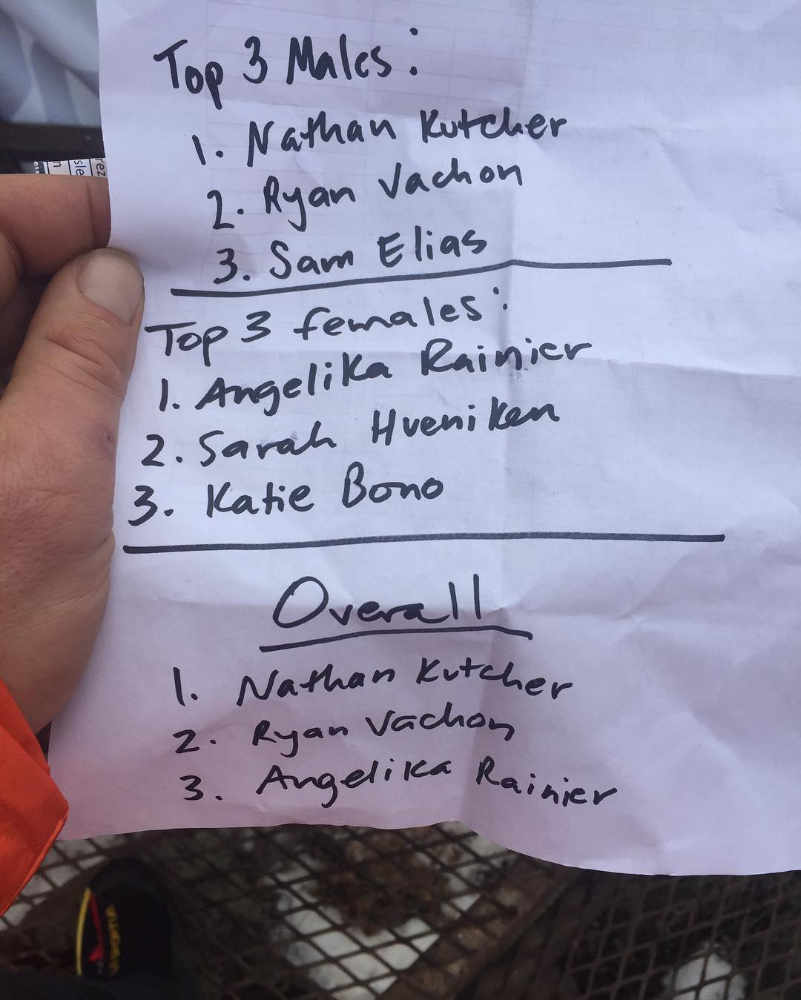 Top 3 Males:
1. Nathan Kutcher
2. Ryan Vachon
3. Sam Elias
Top 3 females:
1. Angelika Rainier
2. Sarah Hueniken
3. Katie Bono
Overall
1. Nathan Kutcher
2. Ryan Vachon
3. Angelika Rainier